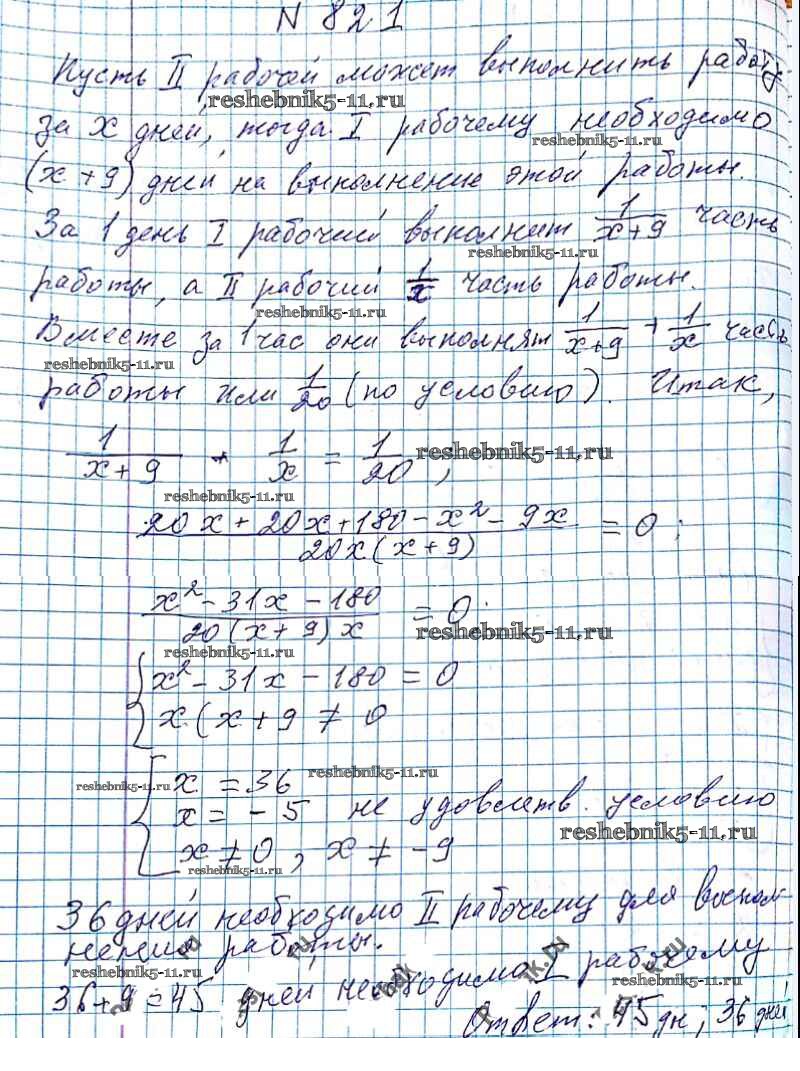 N 821
Пусть II рабочей может выполнить работу
reshebnik5-11.ru
за x дней, тогда I рабочему необходимо
reshebnik5-11.ru
(x+9) дней на выполнение этой работы.
За 1 день I рабочий выполнит 1/(x+9) часть
reshebnik5-11.ru
работы, а II рабочий 1/x часть работы.
reshebnik5-11.ru
Вместе за 1 час они выполнят 1/(x+9) + 1/x часть
reshebnik5-11.ru
работы или 1/20 (по условию). Итак,
1/(x+9) + 1/x = 1/20 ;
reshebnik5-11.ru
reshebnik5-11.ru
(20x + 20x + 180 - x² - 9x)/(20x(x+9)) = 0 ;
(x² - 31x - 180)/(20(x+9)x) = 0 ;
reshebnik5-11.ru
reshebnik5-11.ru
x² - 31x - 180 = 0
x (x + 9 ≠ 0
reshebnik5-11.ru
x = 36
reshebnik5-11.ru
x = - 5 не удовлетв. условию
reshebnik5-11.ru
x ≠ 0 , x ≠ -9
reshebnik5-11.ru
36 дней необходимо II рабочему для
нения работы.
36+9=45 дней необходимо I рабочему
Ответ: 45 дн ; 36 дней